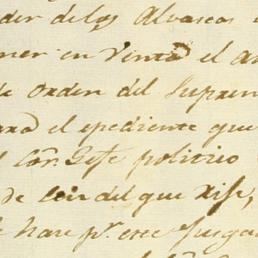 der de los Alvaceas
ner en Venta el
de orden del Suprem
ara el epediente que
l Cõn Gefe politico
de del que dise,
hare pr. este Juzga